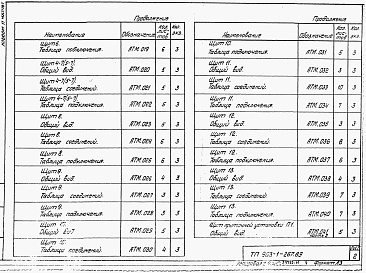 Продолжение
Наименование Обозначение Кол. листов Кол. экз.
Щит 6. Таблица подключения. АТМ.019 6 3
Щит 4-7(5-7). Общий вид. АТМ.020 5 3
Щит 4-7(5-7). Таблица соединений. АТМ.021 5 3
Щит 4-7(5-7). Таблица подключения. АТМ.022 6 3
Щит 8. Общий вид. АТМ.023 5 3
Щит 8. Таблица соединений. АТМ.024 6 3
Щит 8. Таблица подключения. АТМ.025 6 3
Щит 9. Общий вид. АТМ.026 4 3
Щит 9. Таблица соединений. АТМ.027 3
Щит 9. Таблица подключения. АТМ.028 3 3
Щит 10. Общий вид. АТМ.029 5 3
Щит 10. Таблица соединений. АТМ.030 4 3
Продолжение
Наименование Обозначение Кол. листов Кол. экз.
Щит 10. Таблица подключения. АТМ.031 5 3
Щит 11. Общий вид. АТМ.032 3
Щит 11. Таблица соединений. АТМ.033 10 3
Щит 11. Таблица подключения. АТМ.034 7 3
Щит 12. Общий вид. АТМ.035 3 3
Щит 12. Таблица соединений. АТМ.036 8 3
Щит 12. Таблица подключения. АТМ.037 6 3
Щит 13. Общий вид. АТМ.038 4 3
Щит 13. Таблица соединений. АТМ.039 7 3
Щит 13. Таблица подключения. АТМ.040 7 3
Щит приточной установки П1. Общий вид. АТМ.041 5 3
ТП 903-1-267.89
Формат А3